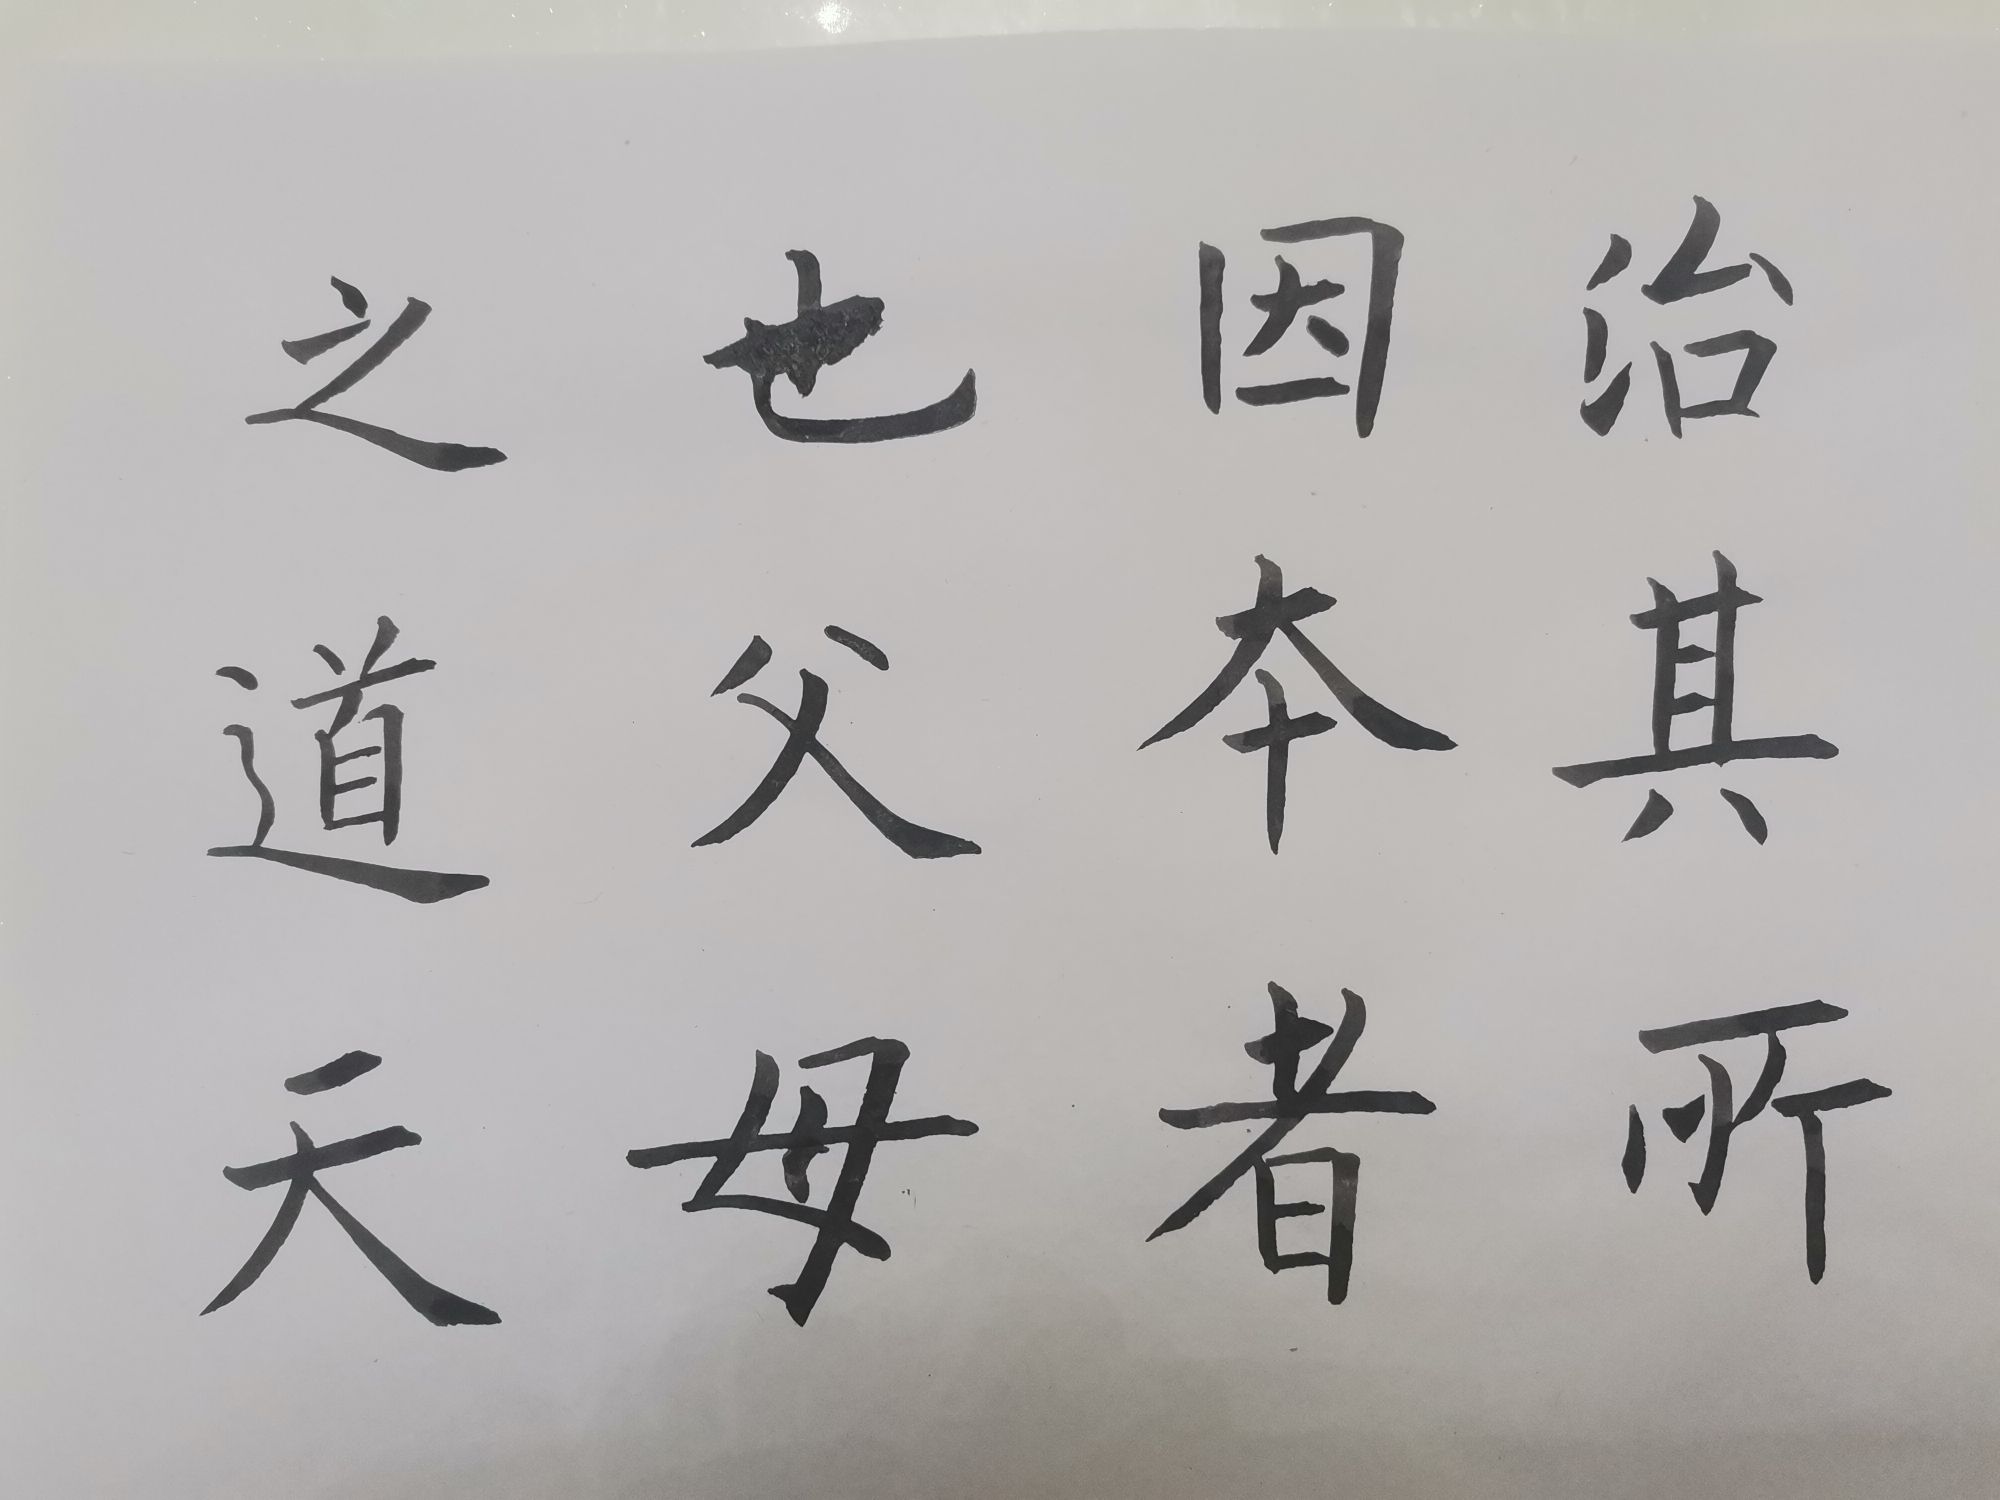 治其所
因本者
也父母
之道天